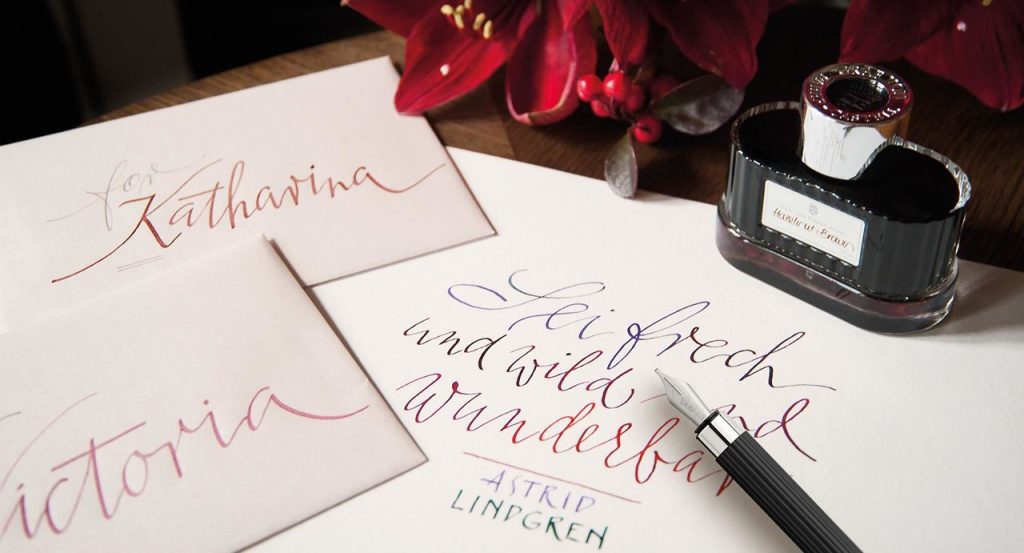 for
Katharina
Victoria
Sei frech
und wild und
wunderbar
ASTRID
LINDGREN
Hazelnut Brown